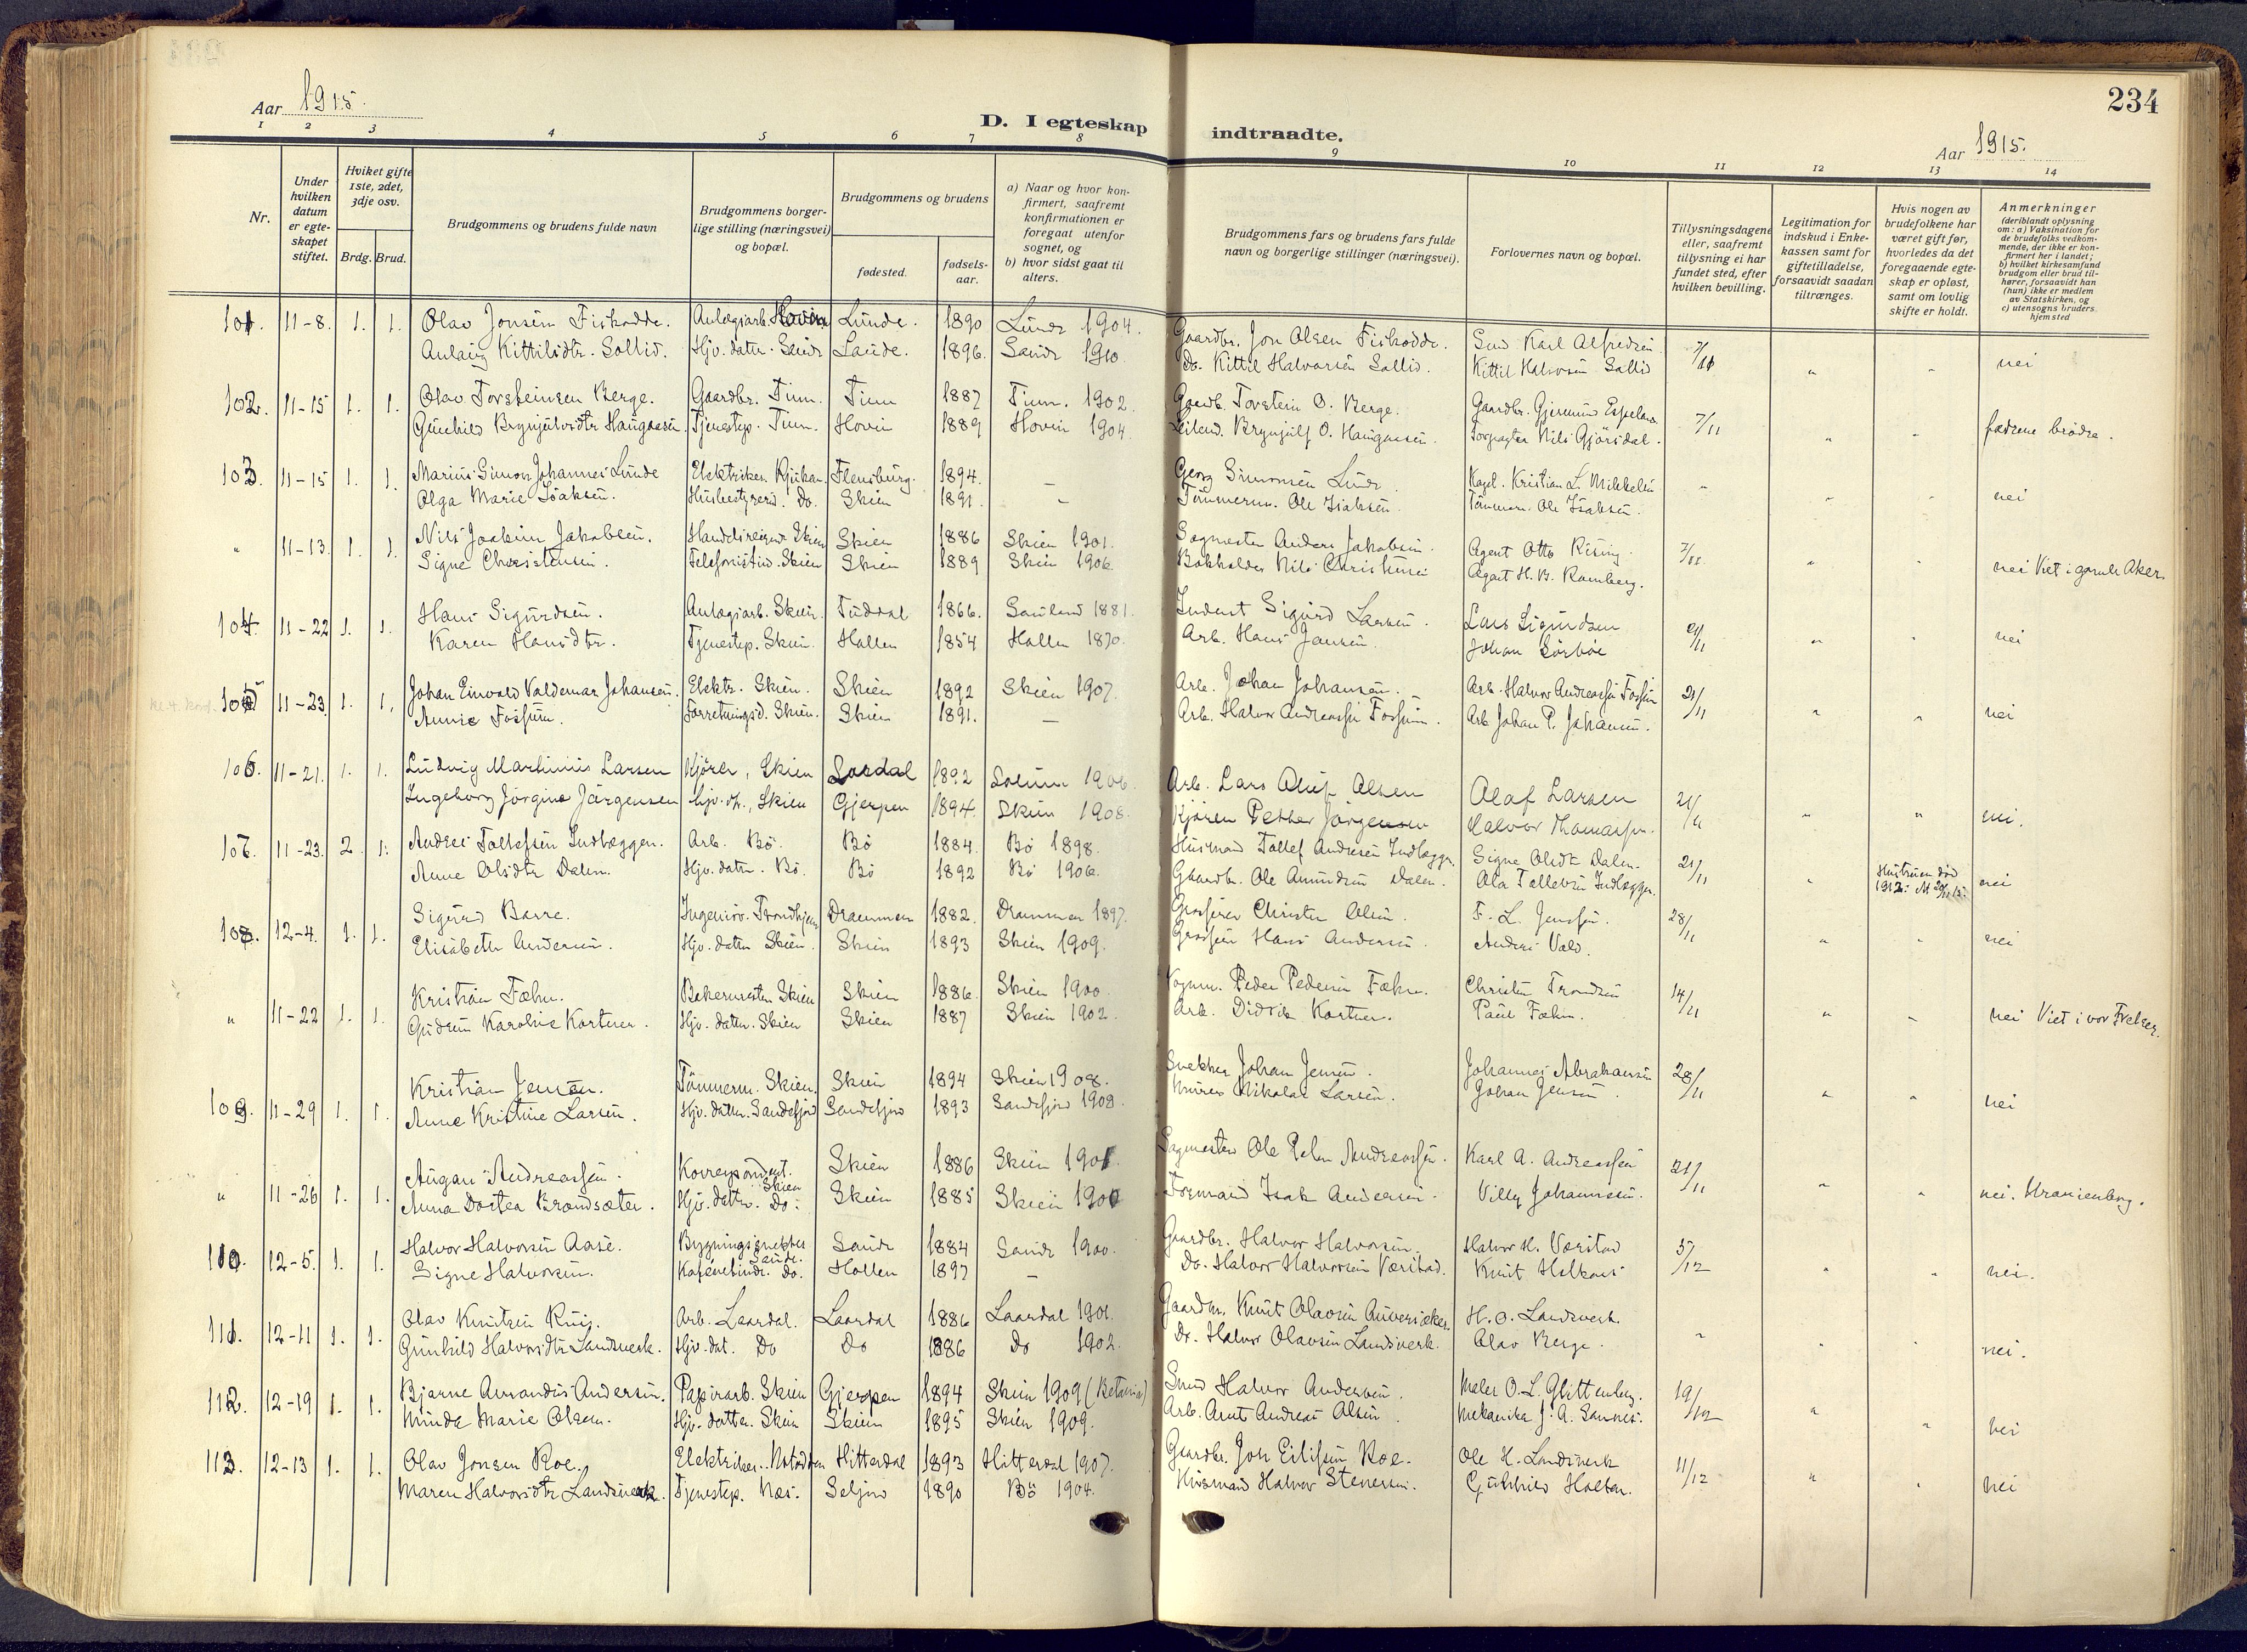 234
Aar 1915.
D. I egteskap indtraadte.
Aar 1915.
1 2 3 4 5 6 7 8 9 10 11 12 13 14
Nr.
Under hvilken datum er egteskapet stiftet.
Hvilket gifte 1ste, 2det, 3dje osv.
Brdg. Brud.
Brudgommens og brudens fulde navn
Brudgommens borgerlige stilling (næringsvei) og bopæl.
Brudgommens og brudens
fødested.
fødselsaar.
a) Naar og hvor konfirmert, saafremt konfirmationen er foregaat utenfor sognet, og
b) hvor sidst gaat til alters.
Brudgommens fars og brudens fars fulde navn og borgerlige stillinger (næringsvei).
Forlovernes navn og bopæl.
Tillysningsdagene eller, saafremt tillysning ei har fundet sted, efter hvilken bevilling.
Legitimation for indskud i Enkekassen samt for giftetilladelse, forsaavidt saadan tiltrænges.
Hvis nogen av brudefolkene har været gift før, hvorledes da det foregaaende egteskap er opløst, samt om lovlig skifte er holdt.
Anmerkninger (deriblandt oplysning om: a) Vaksination for de brudefolks vedkommende, der ikke er konfirmert her i landet; b) hvilket kirkesamfund brudgom eller brud tilhører, forsaavidt han (hun) ikke er medlem av Statskirken, og c) utensogns bruders hjemsted
101. 11-8. 1. 1. Olav Jonsen Fiskodde. Anlægsarb. Hovin Lunde. 1890 Lunde 1904. Gaardbr. Jon Olsen Fiskodde. Karl Alfredsen 7/11 " " nei
Aslaug Kittilsdtr. Sollid. Hjv. datter. Sande 1896. Sande 1910. Do. Kittil Halvorsen Sollid. Kittil Halvorsen Sollid
102. 11-15 1. 1. Olav Torsteinsen Berge. Gaardbr. Tinn. Tinn 1887 Tinn. 1902. Gaardb. Torstein O. Berge. Gaardbr. 7/11 " " fædrene brødre.
Gunhild Brynjulvsdtr Haugaasen. Tjenestep. Tinn. Hovin 1889 Hovin 1904. Brynjulf O. Haugaasen. Nils Gjøsdal.
103. 11-15 1. 1. Marius Simon Johannes Lunde Elektriker Rjukan. Flensburg. 1894. — Georg Simonsen Lunde Kapel. Kristian L. Mikkelsen " " " nei
Olga Marie Isaksen. Husbestyrer. Do. Skien 1891. — Tømmerm. Ole Isaksen. Tømmerm. Ole Isaksen.
" 11-13. 1. 1. Nils Joakim Jakobsen. Handelsreisende Skien Skien 1886 Skien 1901. Sagmester Anders Jakobsen. Agent Otto Rising. 7/11 " " nei Viet i gamle Aker.
Signe Christensen. Telefonistind. Skien Skien 1889 Skien 1906 Bokholder Nils Christensen Agent H. B. Ramberg.
104. 11-22 1. 1. Hans Sigurdsen. Anlægsarb. Skien. Tuddal 1866. Sauland 1881. Inderst Sigurd Larsen. Lars Sigurdsen 21/11 " " nei
Karen Hansdtr. Tjenestep. Skien. Hollen 1854 Hollen 1870. Arb. Hans Jansen. Johan Sørbøe
105 11-23. 1. 1. Johan Einvald Valdemar Johansen. Elektr. Skien. Skien 1892 Skien 1907. Arb. Johan Johansen. Arb. Halvor Andreassen Fossum 21/11 " " nei
Annie Fossum. Forretningsd. Skien. Skien 1891. — Arb. Halvor Andreassen Fossum. Arb Johan P. Johansen.
106. 11-21. 1. 1. Ludvig Martinius Larsen Kjører, Skien 1892 Solum 1906. Arb. Lars Oluf Olsen Olaf Larsen 21/11 " " nei.
Ingeborg Jørgine Jørgensen hjv. dt., Skien Gjerpen 1894. Skien 1908. Kjører Petter Jørgensen Halvor Thomassen.
107. 11-23. 2. 1. Andres Tollefsen Indlæggen. Arb. Bø. Bø 1884. Bø 1898. Husmand Tollef Andresen Indlæggen. Signe Olsdtr Dalen. 21/11 " Hustruen død 1912. nei
Anne Olsdtr Dalen. Hjv. datter. Bø. Bø 1892 Bø 1906. Gaardb. Ole Amundsen Dalen. Ola Tollefsen Indlæggen.
108. 12-4. 1. 1. Sigurd Barre. Ingeniør. Trondhjem Drammen 1882. Drammen 1897. Grosserer Christen Olsen. F. L. Jenssen. 28/11 " " nei
Elisabeth Andersen. Hjv. datter Skien. Skien 1893 Skien 1909. Grosserer Hans Andersen. Anders Vald.
" 11-22 1. 1. Kristian Fæhn. Bakermester Skien Skien 1886. Skien 1900 Vognm. Peder Pedersen Fæhn. Christen Trondsen 14/11 " " nei Viet i vor Frelser.
Gudrun Karoline Kortner. Hjv. datter. Skien Skien 1887 Skien 1902. Arb. Didrik Kortner. Paul Fæhn.
109. 11-29 1. 1. Kristian Jensen. Tømmerm. Skien. Skien 1894 Skien 1908. Snekker Johan Jensen. Johannes Abrahamsen 28/11 " " nei
Anne Kristine Larsen. Hjv. datter. Sandefjord Sandefjord 1893 Sandefjord 1908. Murer Nikolai Larsen. Johan Jensen.
" 11-26 1. 1. August Andreassen. Korrespondent. Skien Skien 1886 Skien 1901. Sagmester Ole Peter Andreassen. Karl A. Andreassen 21/11 " " nei. Uranienborg.
Anna Dortea Brandsæter. Hjv. datter. Do. Skien 1885 Skien 1900 Formand Isak Andersen. Villy Johannesen.
110. 12-5. 1. 1. Halvor Halvorsen Aase. Bygningssnekker Sande. Sande 1884 Sande 1900. Gaardbr. Halvor Halvorsen. Halvor H. Værstad 5/12 " " nei.
Signe Halvorsen. Do. Hollen 1897 — Do. Halvor Halvorsen Værstad. Knut
111. 12-11 1. 1. Olav Knutsen Arb. Laardal. Laardal 1886 Laardal 1901. Gaardbr. Knut Olavsen H. O. Landsverk. " " " nei.
Gunhild Halvorsdtr Landsverk. Hjv. dat. Do Do 1886 Do 1902. Do. Halvor Olavsen Landsverk. Olav Berge.
112. 12-19 1. 1. Bjarne Amandus Andersen. Papirarb. Skien Gjerpen 1894 Skien 1909 (Betania) Smed Halvor Andersen. Maler O. L. Glittenberg. 19/12 " " nei
Minda Marie Olsen. Hjv. datter. Skien Skien 1895 Skien 1909. Arb. Arnt Andreas Olsen. Mekaniker J. A. Sannes.
113. 12-13 1. 1. Olav Jonsen Roe. Elektriker. Notodden Hitterdal 1893 Hitterdal 1907. Gaardbr. Jon Eilifsen Roe. Ole H. Landsverk 11/12 " " nei
Maren Halvorsdtr Landsverk. Tjenestep. Næs. Seljord 1890 Bø 1904. Husmand Halvor Stenersen. Gunhild Holtan.